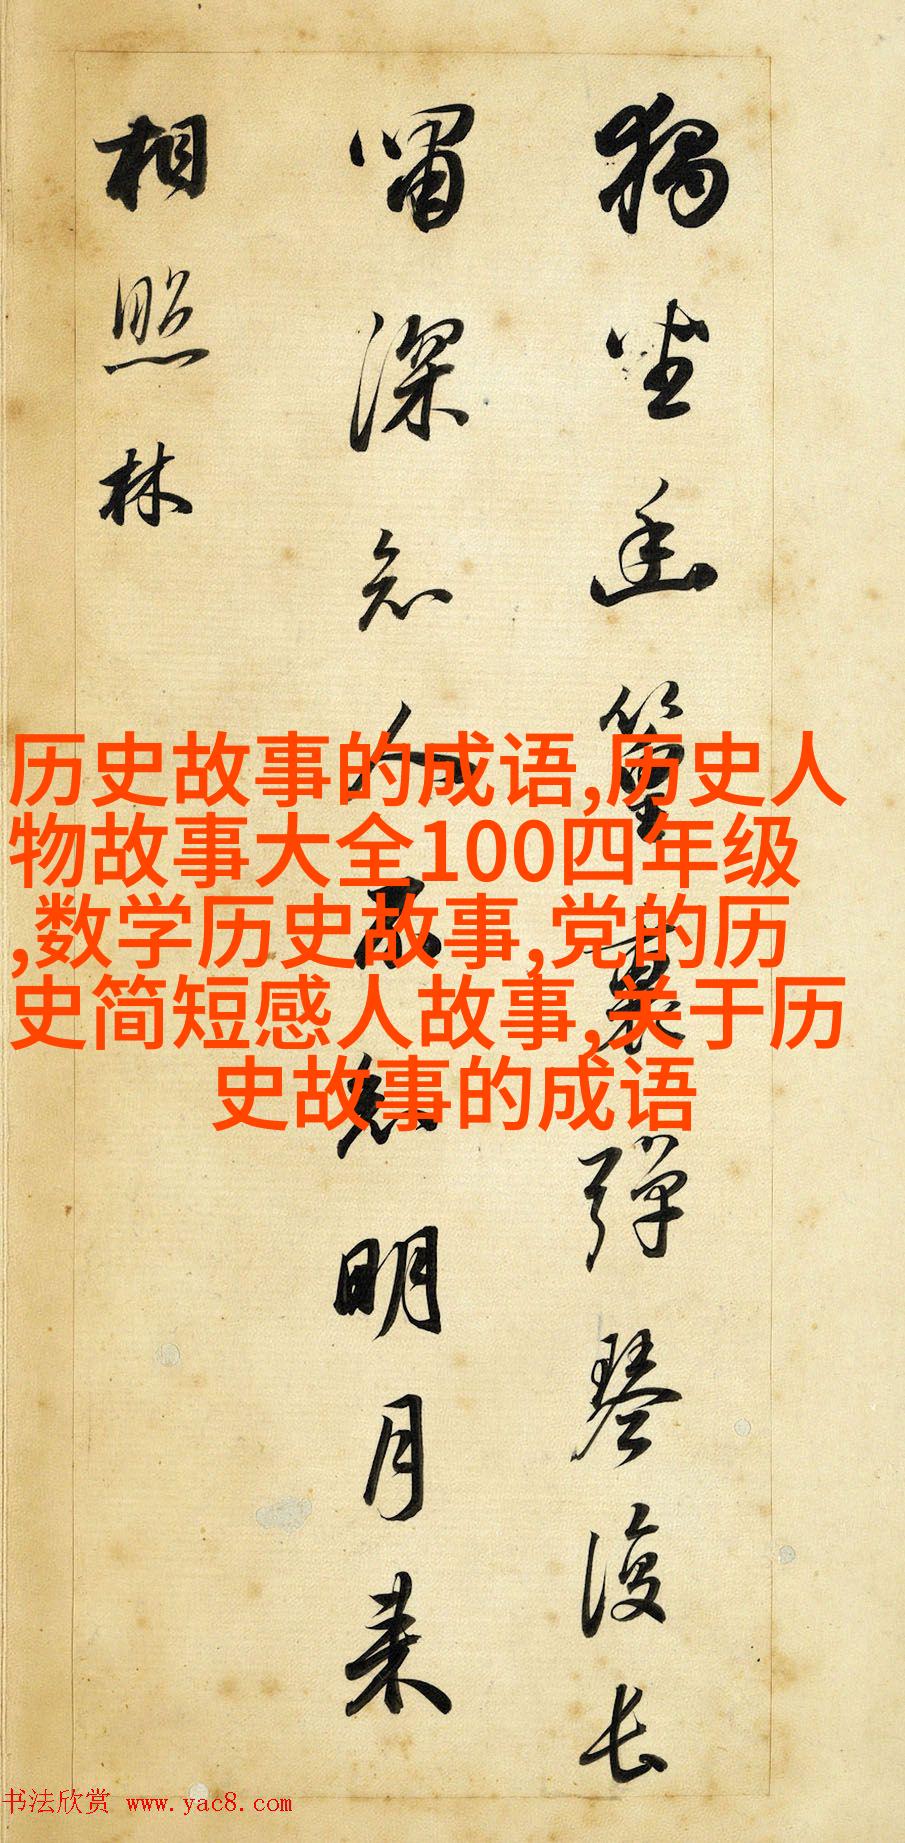 獨坐幽篁裏彈琴復長
嘯深人不知明月来
相照林
历史故事的成语,历史人
物故事大全100四年级
,数学历史故事,党的历
史简短感人故事,关于历
史故事的成语
书法欣赏 www.yac8.com